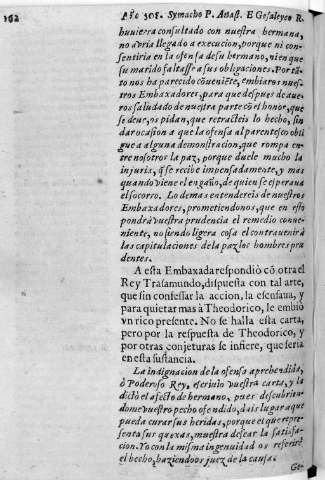 162 Año 508. Symacho P. Anast. E Gesaleyco R.
huuiera consultado con nuestra hermana,
no auria llegado a execucion, porque ni con-
sentiria en la ofensa de su hermano, ni en que
su marido faltasse a sus obligaciones. Por tā-
to nos ha parecido cōueniēte, embiaros nuestros
tros Embaxadores, para que despues de aue-
ros saludado de nuestra parte cō el honor, que
se deue, os pidan, que retracteis lo hecho, sin
dar ocasion a que la ofensa al parentesco obli
gue a alguna demonstracion, que rompa en-
tre nosotros la paz, porque duele mucho la
injuria, q̄ se recibe impensadamente, y mas
quando viene el engaño, de quien se esperaua
el socorro. Lo demas entendereis de nuestros
Embaxadores, prometiendonos, que en esto
pondrà vuestra prudencia el remedio conue-
niente, no siendo ligera cosa el contrauenir à
las capitulaciones de la paz los hombres pru
dentes.
A esta Embaxada respondiò cō otra el
Rey Trasamundo, dispuesta con tal arte,
que sin confessar la accion, la escusaua, y
para quietar mas à Theodorico, le embiò
vn rico presente. No se halla esta carta,
pero por la respuesta de Theodorico, y
por otras conjeturas se infiere, que seria
en esta sustancia.
La indignacion de la ofensa aprehendida,
ò Poderoso Rey, escriuiò vuestra carta, y la
dictò el afecto de hermano, pues descubrien-
dome vuestro pecho ofendido, dais lugar a que
pueda curar sus heridas, porque el que repre-
senta sus quexas, muestra desear la satisfa-
cion. Yo con la misma ingenuidad os referirè
el hecho, haziendoos juez de la causa.
Ge-